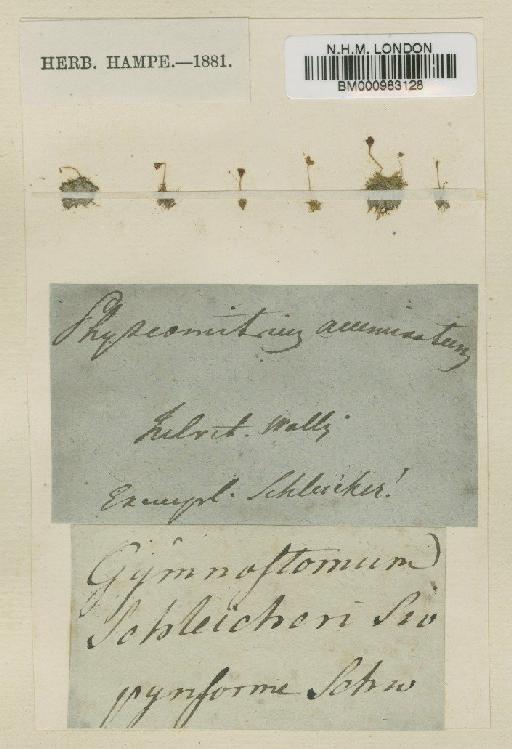 HERB. HAMPE.—1881.
N.H.M. LONDON
BM000983128
Physcomitrium acuminatum
Helvet. Wallis
Exempl. Schleicher!
Gymnoſtomum
Schleicheri
pyriforme Schw